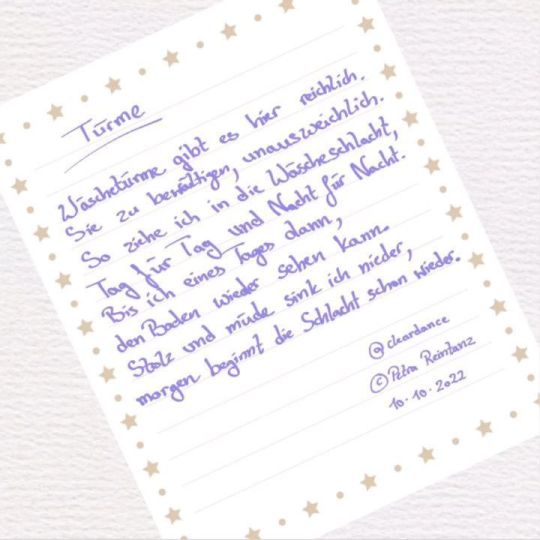 Türme
Wäschetürme gibt es hier reichlich.
Sie zu bewältigen, unausweichlich.
So ziehe ich in die Wäscheschlacht,
Tag für Tag und Nacht für Nacht.
Bis ich eines Tages dann,
den Boden wieder sehen kann.
Stolz und müde sink ich nieder,
morgen beginnt die Schlacht schon wieder.
@cleardance
© Petra Reintanz
10.10.2022